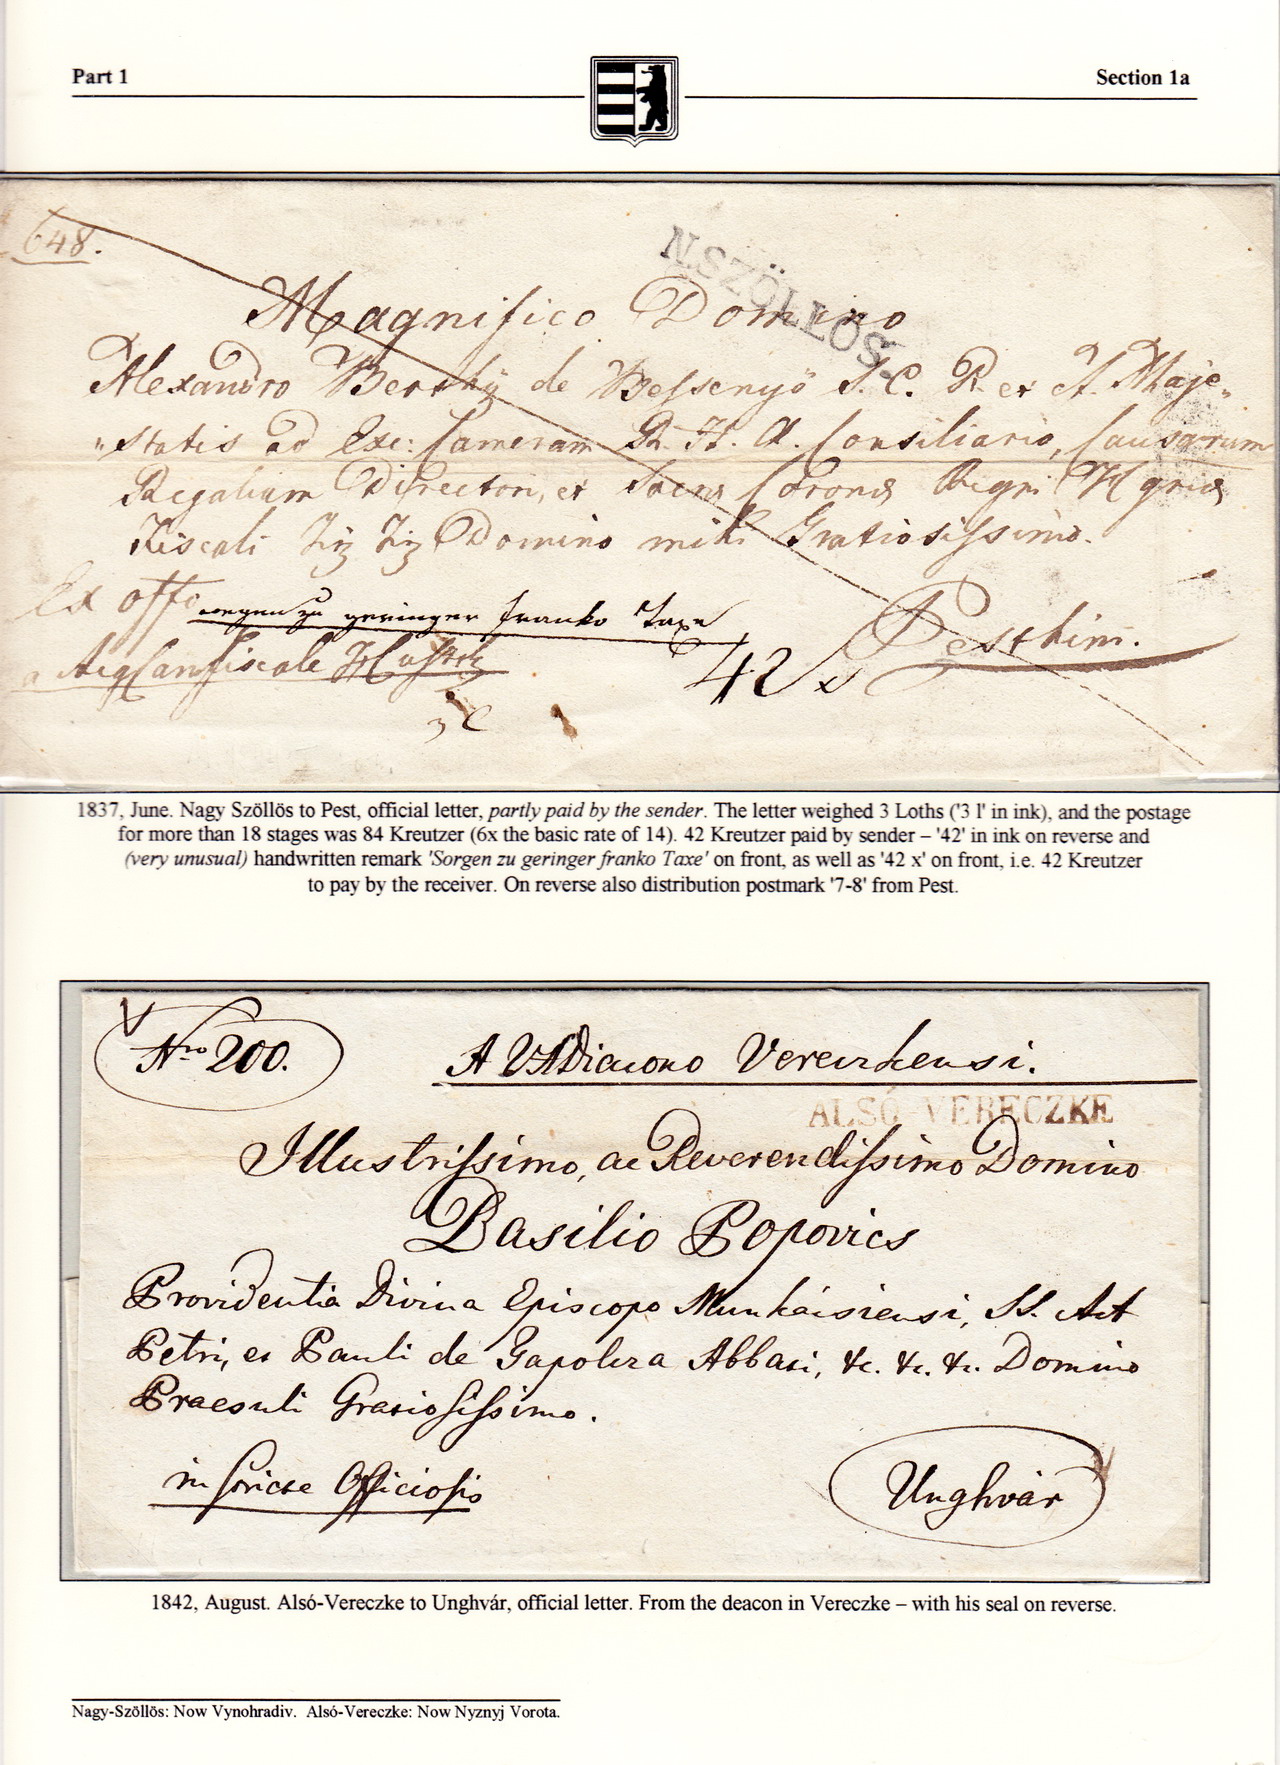 Part 1
Section 1a
648.
N.SZÖLLÖS.
Magnifico Domino
Alexandro de Bessenyö S. C. R. et A. Maje„
„statis ad Exc: Cameram R. H. A. Consiliario, Causarum
Regalium Directori, et Sacra Corona Regni
Fiscali Domino mihi Gratiosissimo.
Ex offo
zu geringer franko Taxe
42 x
Pesthini.
1837, June. Nagy Szöllös to Pest, official letter, partly paid by the sender. The letter weighed 3 Loths ('3 l' in ink), and the postage
for more than 18 stages was 84 Kreutzer (6x the basic rate of 14). 42 Kreutzer paid by sender – '42' in ink on reverse and
(very unusual) handwritten remark 'Sorgen zu geringer franko Taxe' on front, as well as '42 x' on front, i.e. 42 Kreutzer
to pay by the receiver. On reverse also distribution postmark '7-8' from Pest.
Nro 200.
A VADiacono Vereczkensi.
ALSÓ-VERECZKE
Illustrissimo, ac Reverendissimo Domino
Basilio Popovics
Providentia Divina Episcopo Munkácsiensi, SS. Act
Petri, et Pauli de Tapolcza Abbati, &c. &c. &c. Domino
Praesuli Gratiosissimo.
in Officiosis
Unghvár
1842, August. Alsó-Vereczke to Unghvár, official letter. From the deacon in Vereczke – with his seal on reverse.
Nagy-Szöllös: Now Vynohradiv. Alsó-Vereczke: Now Nyznyj Vorota.